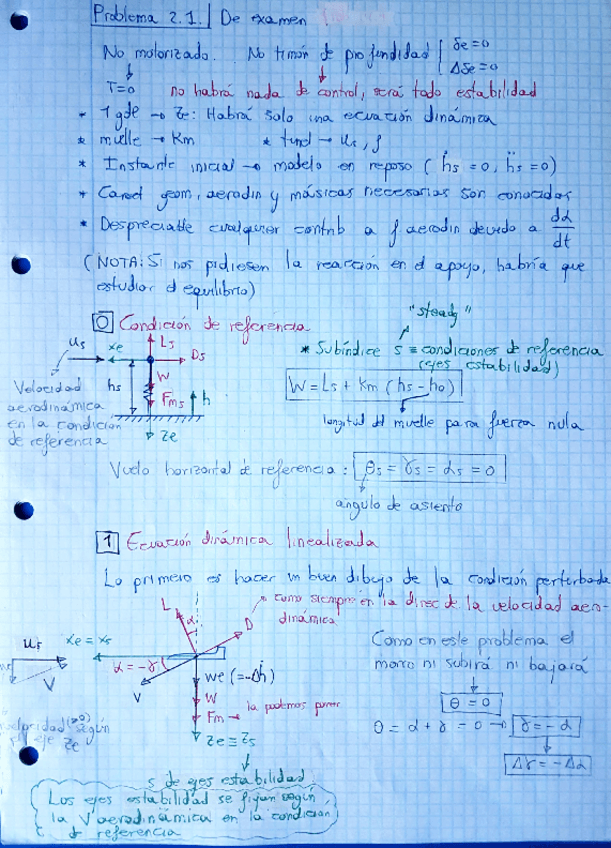 Problema 2.1. De examen
No motorizado. No timón de profundidad { δe=0
Δδe=0
T=0 no habrá nada de control, será todo estabilidad
* 1 gdl → ze: Habrá solo una ecuación dinámica
* muelle → Km * tunel → us, ρ
* Instante inicial → modelo en reposo (ḣs = 0, ḧs = 0)
* Caract geom, aerodin y másicas necesarias son conocidas
* Despreciable cualquier contrib a f aerodin devido a dα/dt
(NOTA: Si nos pidiesen la reacción en el apoyo, habría que
estudiar el equilibrio)
0 Condición de referencia
"steady"
* Subíndice s ≡ condiciones de referencia
(ejes estabilidad)
us xe Ls Ds
W
hs Fms h
ze
Velocidad
aerodinámica
en la condición
de referencia
W = Ls + Km (hs - ho)
longitud del muelle para fuerza nula
Vuelo horizontal de referencia: θs = γs = αs = 0
ángulo de asiento
1 Ecuación dinámica linealizada
Lo primero es hacer un buen dibujo de la condición perturbada
como siempre en la direc de la velocidad aero-
dinámica
L α D
us xe ≡ xs
we V
α = -γ
V
we (= -Δḣ)
W
Fm → la podemos poner
ze ≡ zs
velocidad (>0) según
el eje ze
Como en este problema el
morro ni subirá ni bajará
θ = 0
θ = α + γ = 0 → γ = -α
Δγ = -Δα
s de ejes estabilidad
Los ejes estabilidad se fijan según
la V aerodinámica en la condición
de referencia